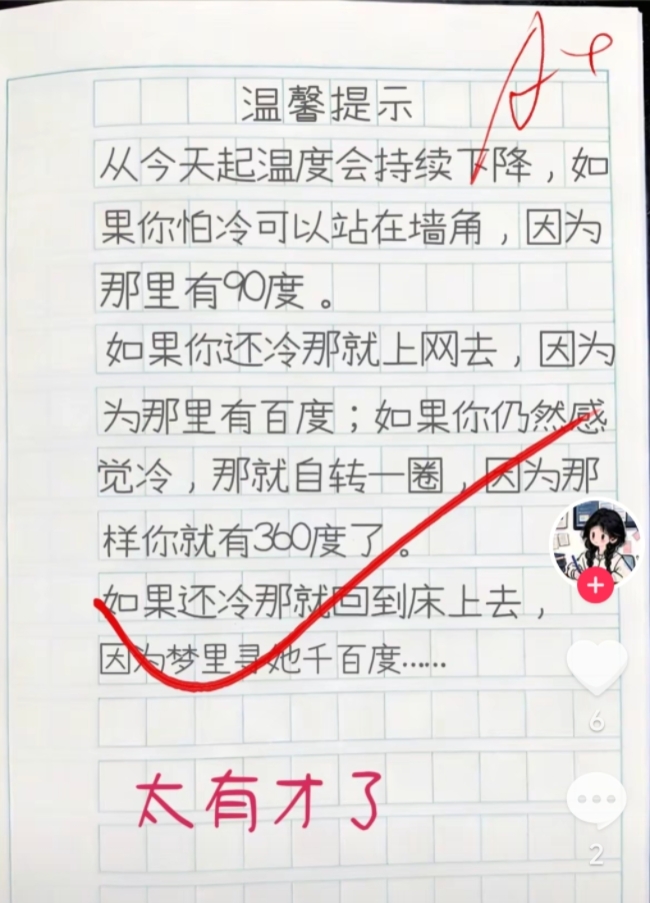 A+
温馨提示
从今天起温度会持续下降，如
果你怕冷可以站在墙角，因为
那里有90度。
如果你还冷那就上网去，因为
为那里有百度；如果你仍然感
觉冷，那就自转一圈，因为那
样你就有360度了。
如果还冷那就回到床上去，
因为梦里寻她千百度……
太有才了
6
2